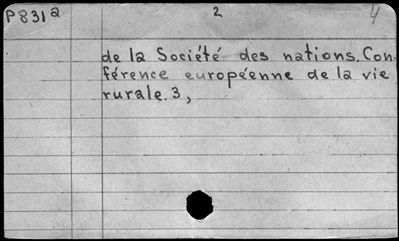 P831a 2 4
de la Société des nations. Con-
férence européenne de la vie
rurale. 3,